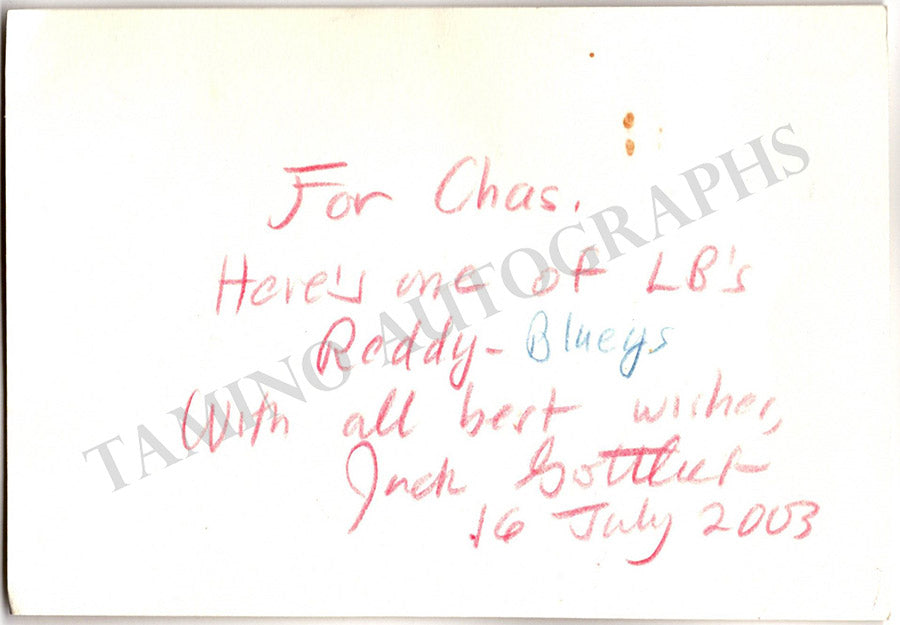 For Chas.
Here's one of LB's
Reddy-Blueys
With all best wishes,
Jack Gottlieb
16 July 2003
TAMINO AUTOGRAPHS